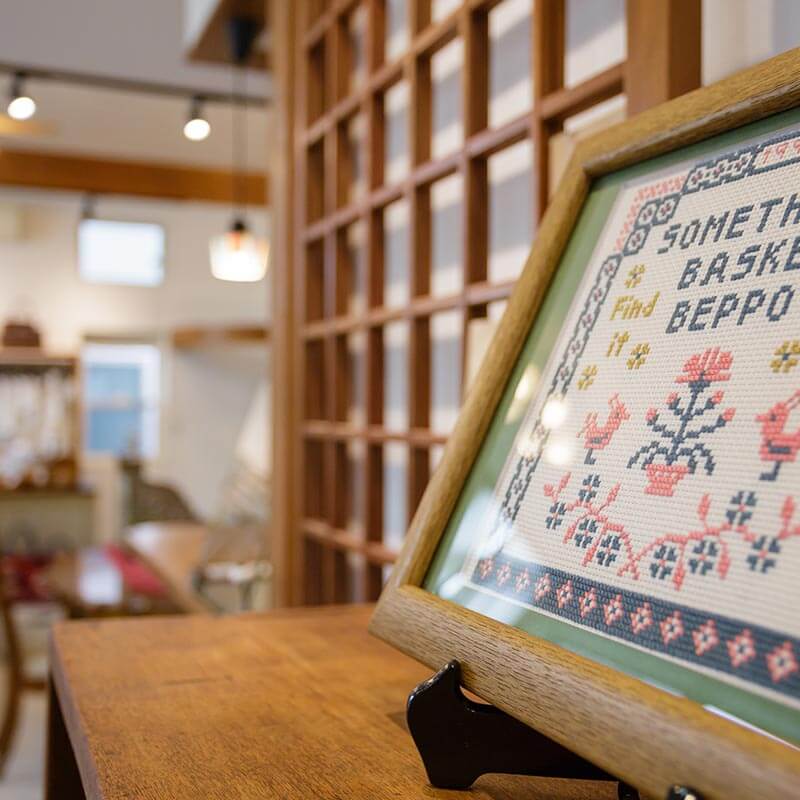 199
SOMETH
BASKE
Find
BEPPO
it